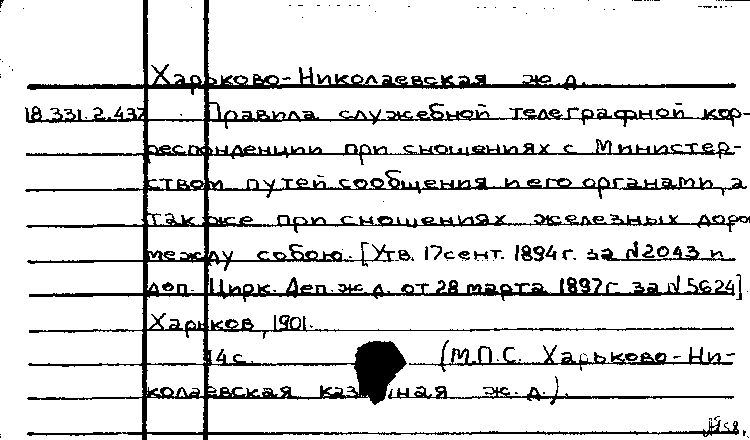 Харьково-Николаевская ж.д.
18.331.2.437 Правила служебной телеграфной кор-
респонденции при сношениях с Министер-
ством путей сообщения и его органами, а
также при сношениях железных доро
между собою. [Утв. 17 сент. 1894 г. за №2043 и
доп. Цирк. Деп. ж.д. от 28 марта 1897 г. за №5624].
Харьков, 1901.
14 с. (М.П.С. Харьково-Ни-
колаевская каз ная ж.д.).